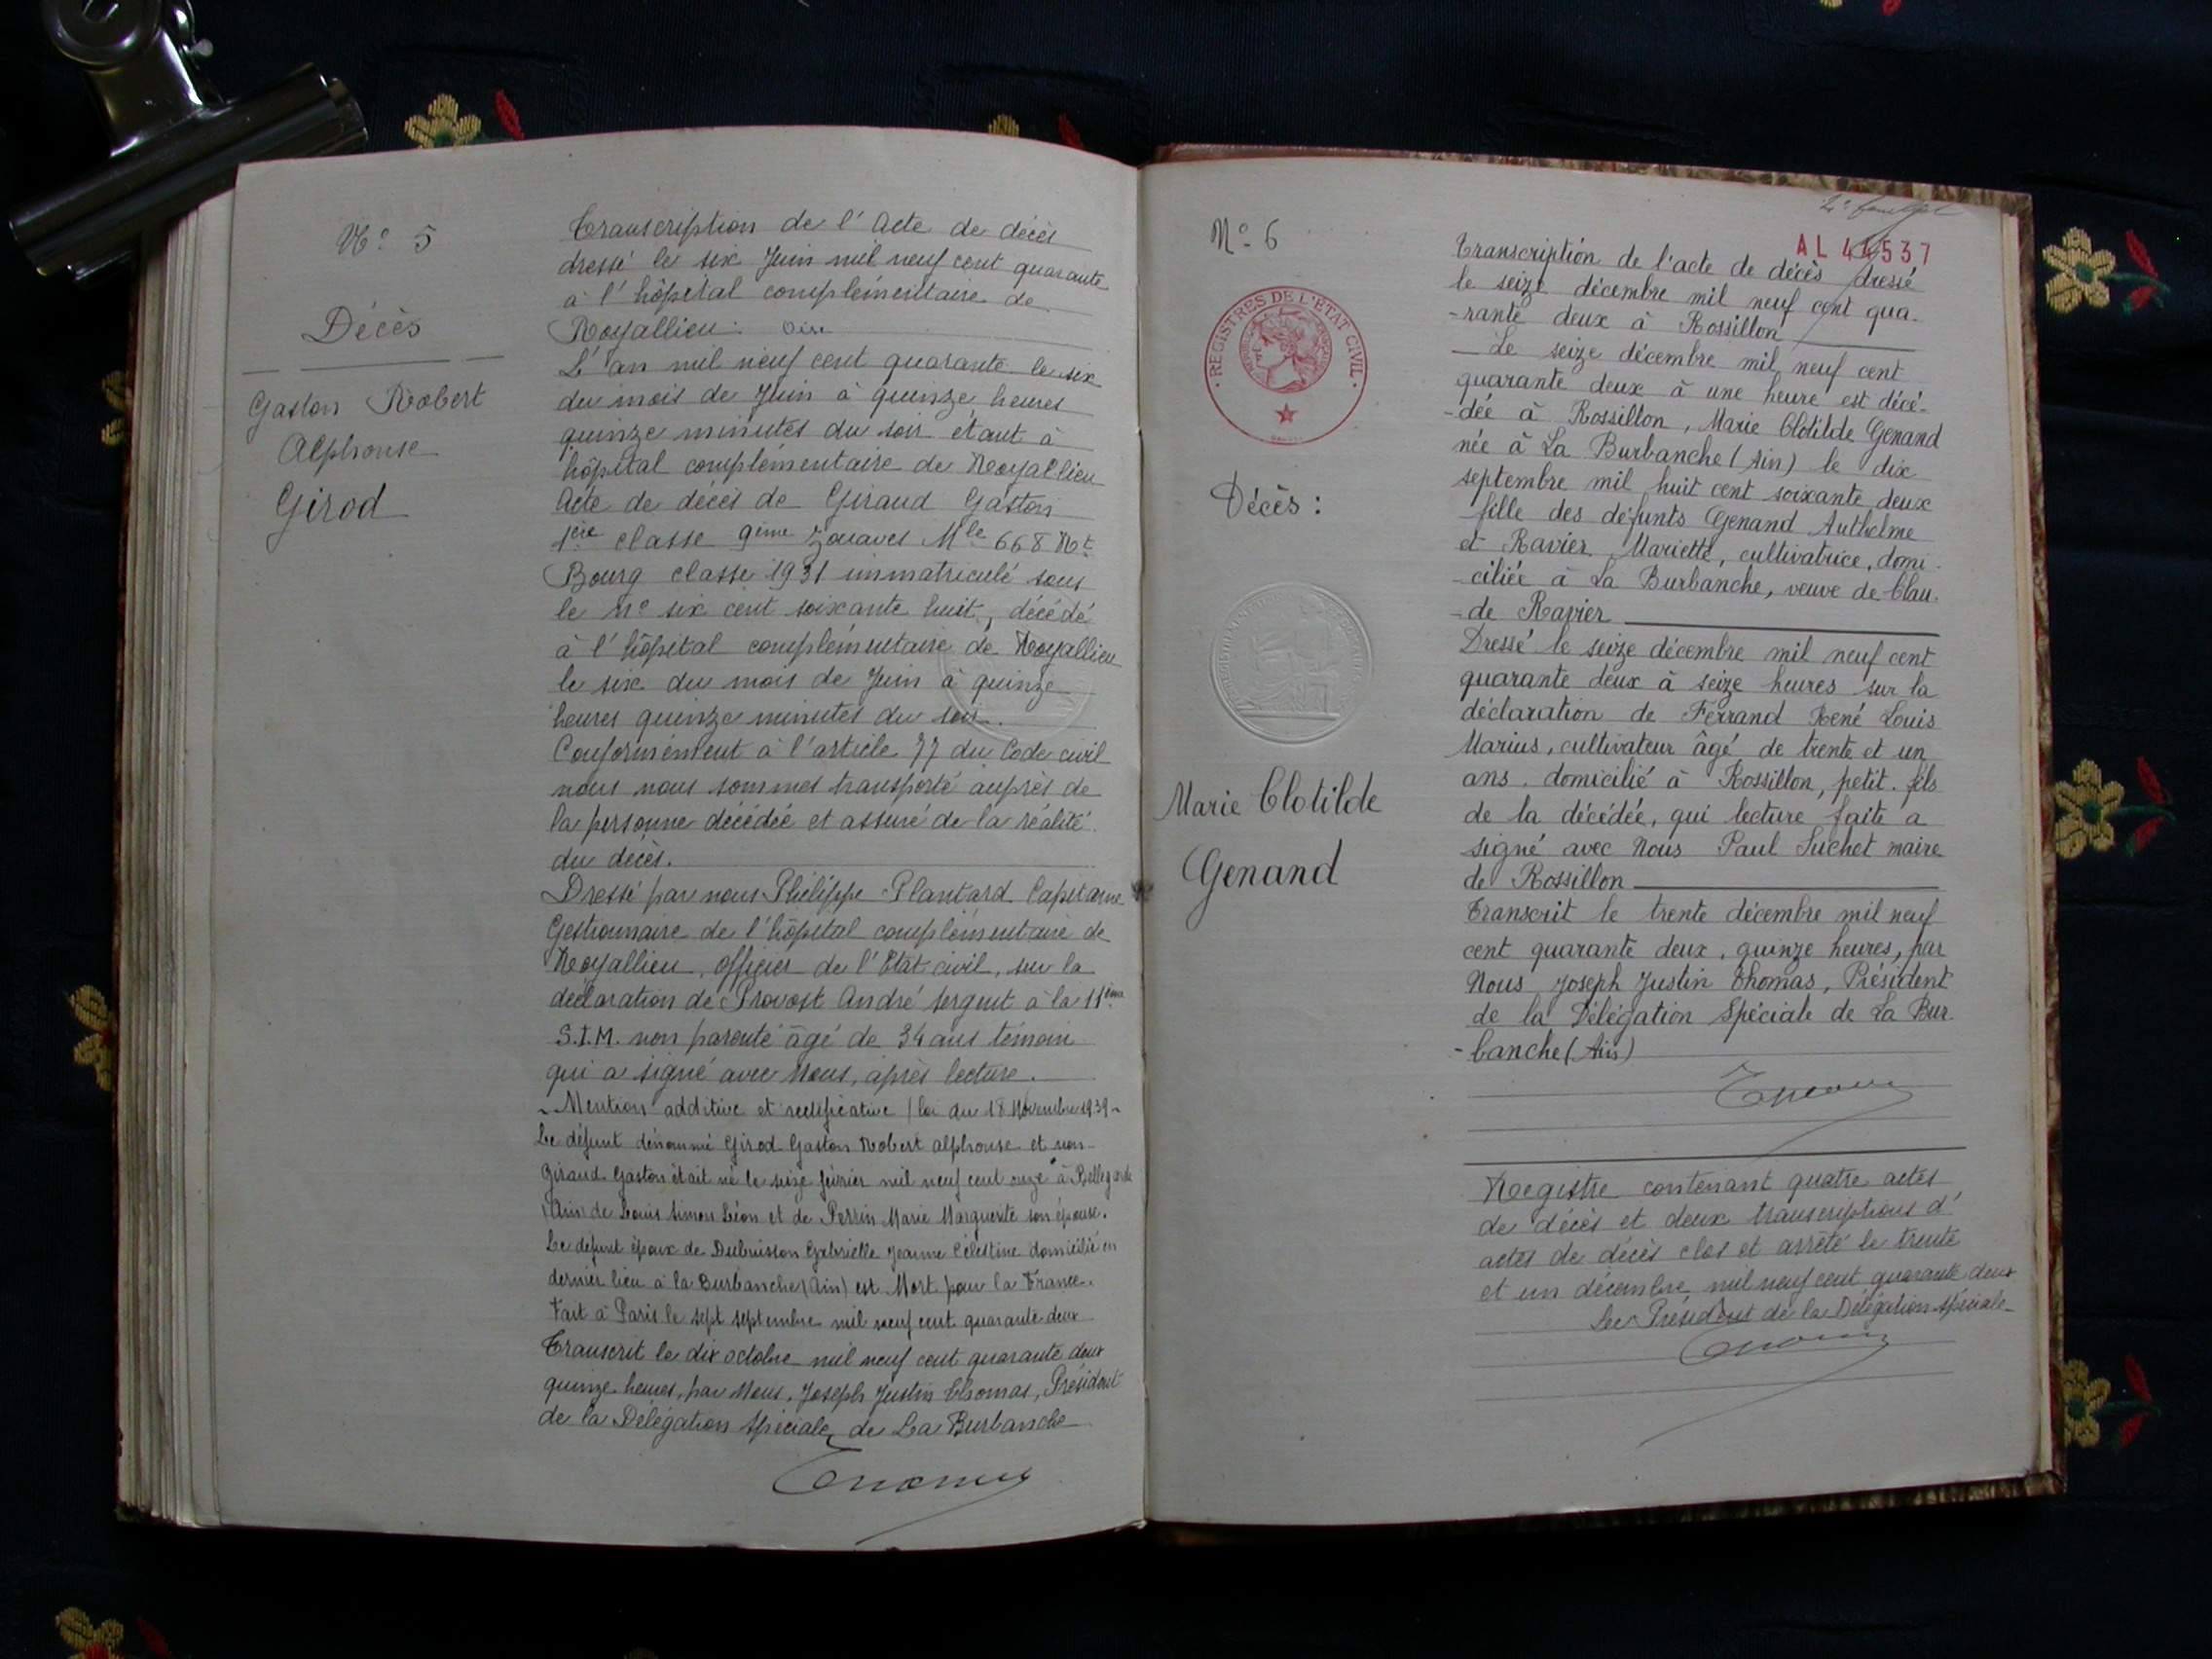 N° 5
Décès
Gaston Robert
Alphonse
Girod
Transcription de l'Acte de décès
dressé le six Juin mil neuf cent quarante
à l'hôpital complémentaire de
Royallieu. Oise
L'an mil neuf cent quarante le six
du mois de Juin à quinze heures
quinze minutes du soir étant à
hôpital complémentaire de Royallieu
Acte de décès de Giraud Gaston
1ère classe 9ème Zouaves Mle 668 Rt
Bourg classe 1931 immatriculé sous
le n° six cent soixante huit, décédé
à l'hôpital complémentaire de Royallieu
le six du mois de Juin à quinze
heures quinze minutes du soir.
Conformément à l'article 77 du Code civil
nous nous sommes transporté auprès de
la personne décédée et assuré de la réalité
du décès.
Dressé par nous Philippe Plantard Capitaine
Gestionnaire de l'hôpital complémentaire de
Royallieu, officier de l'Etat civil, sur la
déclaration de Provost André sergent à la 11ème
S.I.M. non parenté âgé de 34 ans témoin
qui a signé avec Nous, après lecture.
- Mention additive et rectificative (loi du 18 Novembre 1939 -
Le défunt dénommé Girod Gaston Robert Alphonse et non
Giraud Gaston était né le seize février mil neuf cent onze à Bellegarde
(Ain) de Louis Simon Léon et de Perrin Marie Marguerite son épouse.
Le défunt époux de Dubuisson Gabrielle Jeanne Célestine domicilié en
dernier lieu à la Burbanche (Ain) est Mort pour la France.
Fait à Paris le sept septembre mil neuf cent quarante deux
Transcrit le dix octobre mil neuf cent quarante deux
quinze heures, par Nous, Joseph Justin Thomas, Président
de la Délégation Spéciale de La Burbanche
Thomas
N° 6
REGISTRES DE L'ETAT CIVIL
Décès :
Marie Clotilde
Genand
AL 44537
Transcription de l'acte de décès dressé
le seize décembre mil neuf cent qua-
-rante deux à Rossillon
Le seize décembre mil neuf cent
quarante deux à une heure est décé-
-dée à Rossillon, Marie Clotilde Genand
née à La Burbanche (Ain) le dix
septembre mil huit cent soixante deux
fille des défunts Genand Anthelme
et Ravier Mariette, cultivatrice, domi-
-ciliée à La Burbanche, veuve de Clau-
-de Ravier
Dressé le seize décembre mil neuf cent
quarante deux à seize heures sur la
déclaration de Ferrand René Louis
Marius, cultivateur âgé de trente et un
ans. domicilié à Rossillon, petit-fils
de la décédée, qui lecture faite a
signé avec Nous Paul Suchet maire
de Rossillon
Transcrit le trente décembre mil neuf
cent quarante deux, quinze heures, par
Nous Joseph Justin Thomas, Président
de la Délégation Spéciale de La Bur-
-banche (Ain)
Thomas
Registre contenant quatre actes
de décès et deux transcriptions d'
actes de décès clos et arrêté le trente
et un décembre mil neuf cent quarante deux
Le Président de la Délégation Spéciale
Thomas